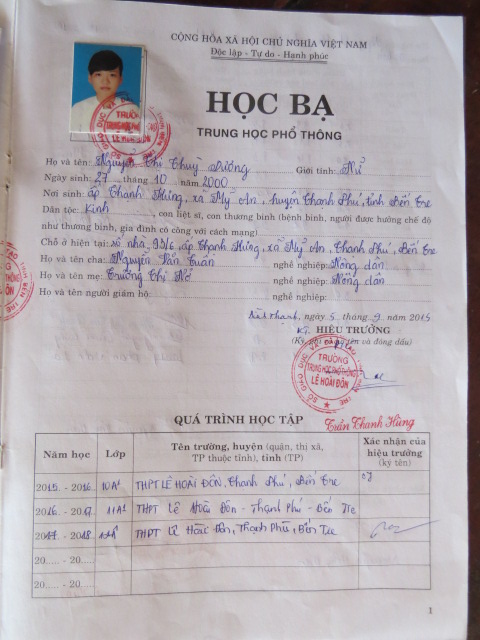 CỘNG HÒA XÃ HỘI CHỦ NGHĨA VIỆT NAM
Độc lập - Tự do - Hạnh phúc
HỌC BẠ
TRUNG HỌC PHỔ THÔNG
Họ và tên: Nguyễn Thị Thuỳ Dương Giới tính: Nữ
Ngày sinh: 27 tháng 10 năm 2000
Nơi sinh: ấp Thạnh Hưng, xã Mỹ An, huyện Thạnh Phú, tỉnh Bến Tre
Dân tộc: Kinh, con liệt sĩ, con thương binh (bệnh binh, người được hưởng chế độ
như thương binh, gia đình có công với cách mạng):
Chỗ ở hiện tại: số nhà 93/6, ấp Thạnh Hưng, xã Mỹ An, Thạnh Phú, Bến Tre
Họ và tên cha: Nguyễn Văn Tuấn nghề nghiệp: Nông dân
Họ và tên mẹ: Trương Thị Nở nghề nghiệp: Nông dân
Họ và tên người giám hộ: nghề nghiệp:
ngày 5 tháng 9 năm 2015
KT. HIỆU TRƯỞNG
(Ký, ghi rõ họ tên và đóng dấu)
TRƯỜNG
TRUNG HỌC PHỔ THÔNG
LÊ HOÀI ĐÔN
Trần Thanh Hùng
QUÁ TRÌNH HỌC TẬP
Năm học Lớp Tên trường, huyện (quận, thị xã, TP thuộc tỉnh), tỉnh (TP) Xác nhận của hiệu trưởng (ký tên)
2015 - 2016 10A1 THPT LÊ HOÀI ĐÔN, Thạnh Phú, Bến Tre
2016 - 2017 11A1 THPT Lê Hoài Đôn - Thạnh Phú - Bến Tre
2017 - 2018 THPT Lê Hoài Đôn, Thạnh Phú, Bến Tre
20..... - 20.....
20..... - 20.....
1